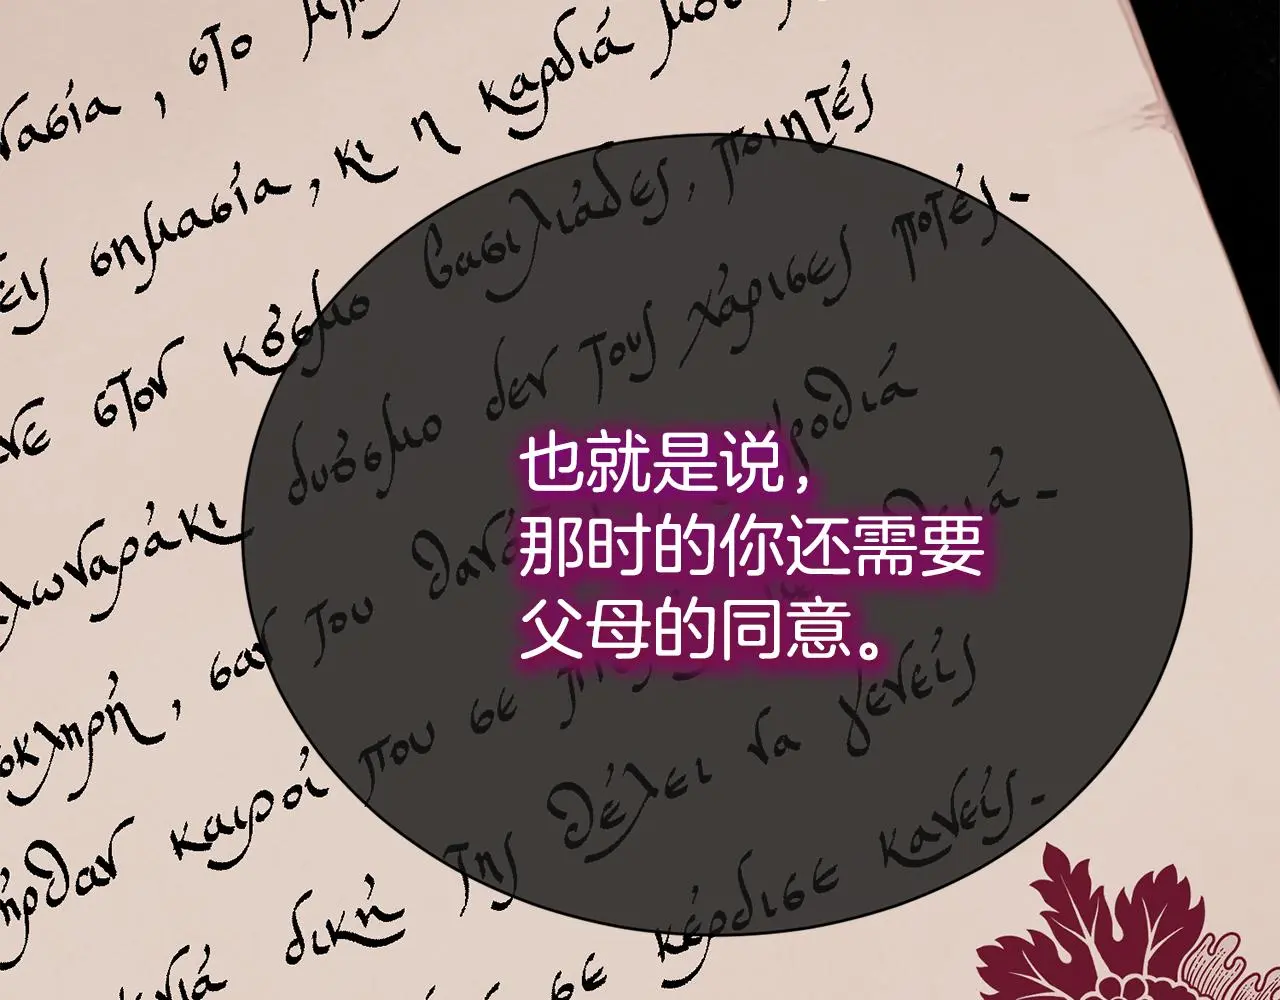 νασία, στο
εις σημασία, κι η καρδιά μου
νε στον κόσμο βασιλιάδες, ποιητές
δυόσμο δεν τους χάρισες ποτές-
λωναράκι
οκληρή, σαν του
ήρθαν καιροί που σε
δική της θέλει να γενείς
σε κέρδισε κανείς-
也就是说，
那时的你还需要
父母的同意。